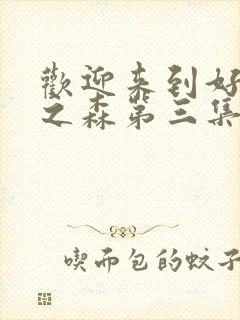 歡迎来到好
之森第三集
喫而包的蚊子